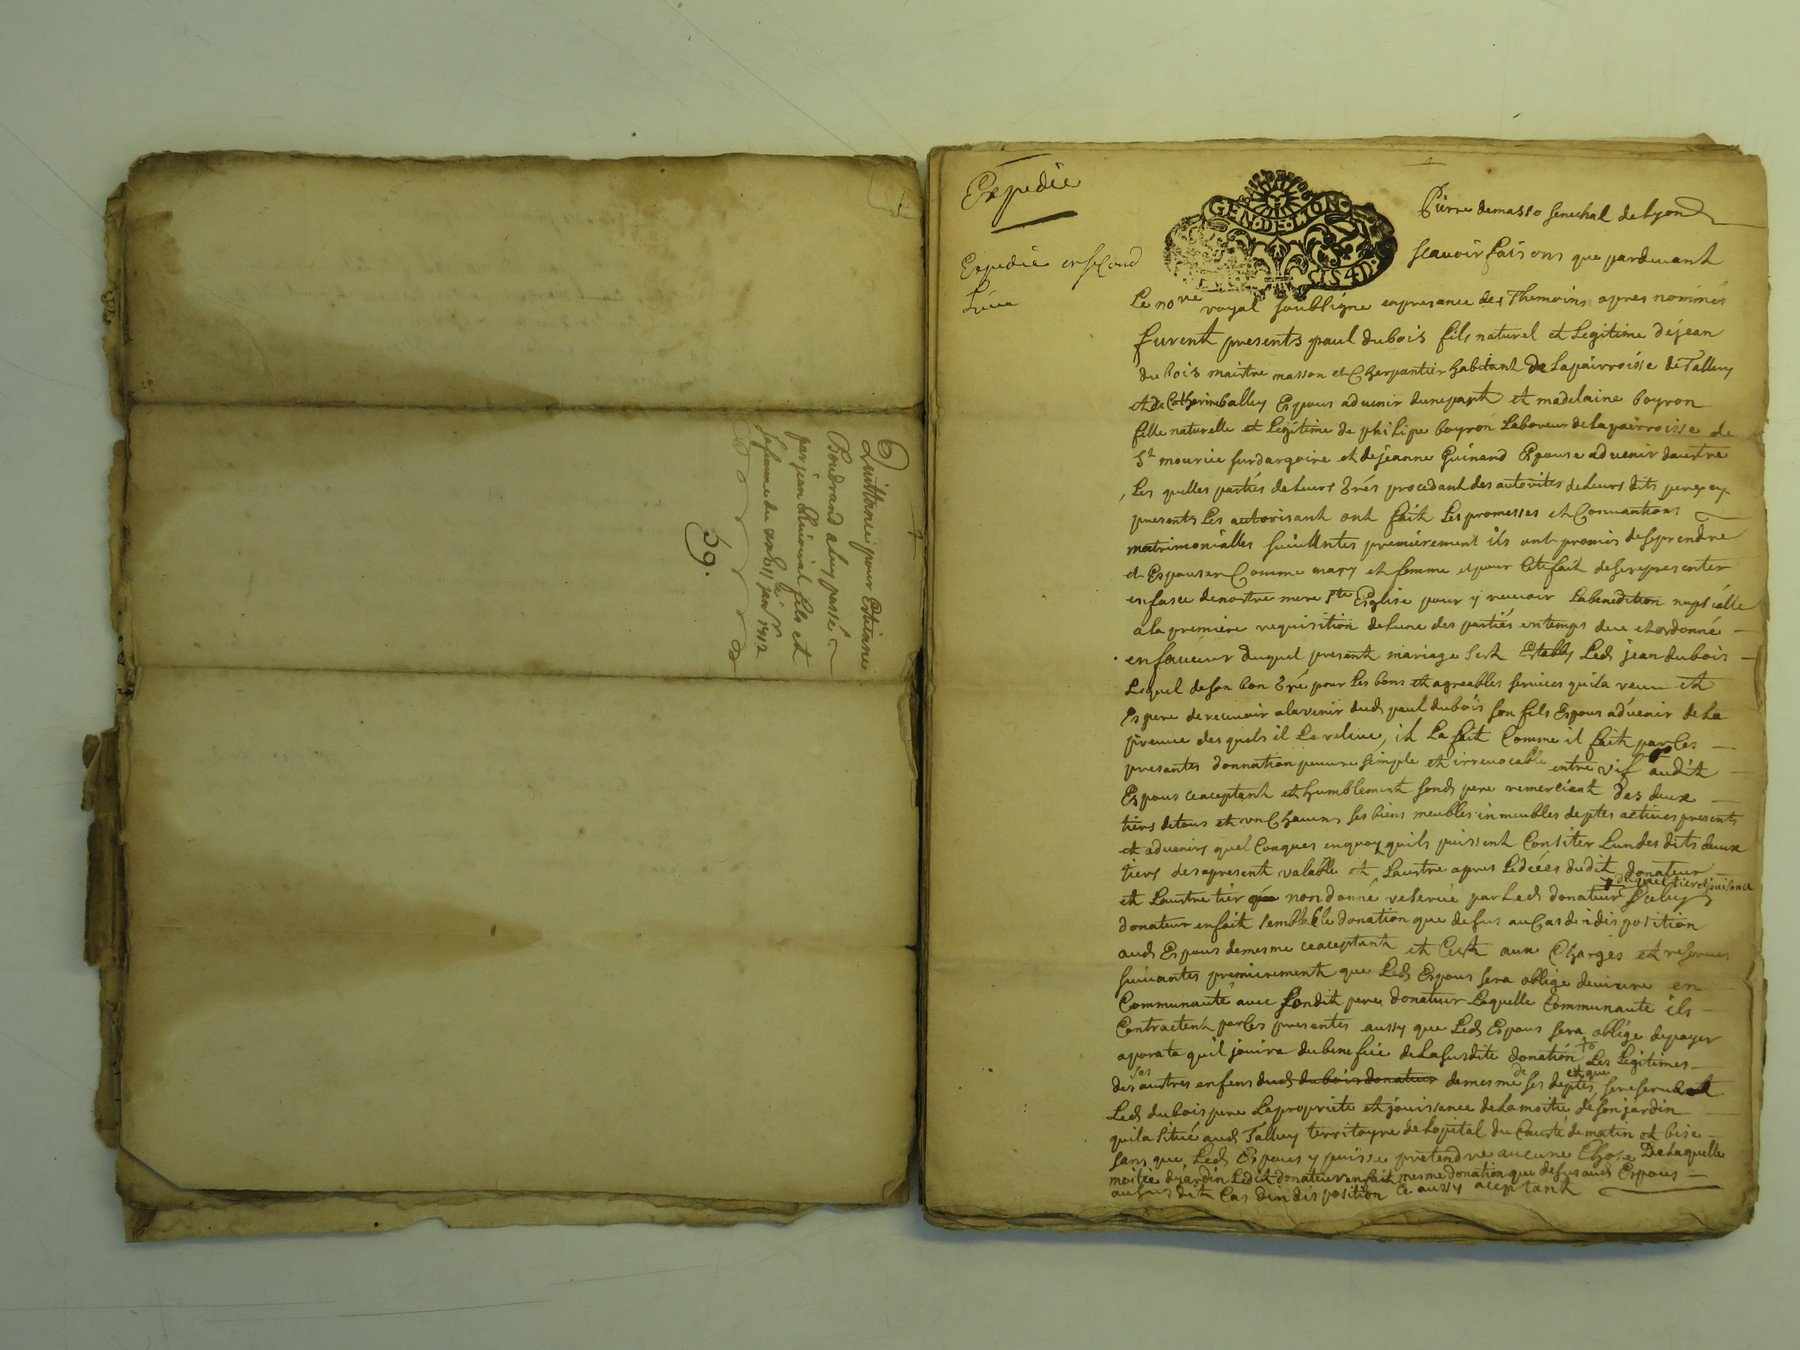 Quittance pour Estienne
Boudrand a luy passé
par jean Chivorial fils et
sa femme du
janv 1712
59.
Expedie
Expedie en second
Lieu
GEN DE LION
Pierre demasso senechal de Lyon
scavoir faisons que pardevant
Le no re royal soubsigne en presance des Themoins apres nommés
furent presents paul dubois fils naturel et Legitime de jean
dubois maistre masson et Cherpantier habitant de La pairroisse de Talluy
et de Catherine balley Espous advenir dune part et madelaine boyron
fille naturelle et Legitime de philipe boyron Laboreur de La pairroisse de
St mourice sur dargoire et de jeanne Guinand Espouse advenir daustre
Les quelles parties de Leurs Grés procedant des autorités de Leurs dits peres cy
presents Les autorisant ont fait Les promesses et Convantions
matrimonialles suivantes premierement ils ont promis de se prendre
et Espouser Comme mary et femme et pour Cet efait de se representer
en fasce de nostre mere ste Esglise pour y recevoir La benedition nuptielle
a la premiere requisition de Lune des parties en temps deu et ordonné
en faveur duquel presant mariage sest Estably Led jean dubois
Lequel de son bon Gré pour Les bons et agreables services quil a receu et
Espere de recevoir a lavenir dud paul dubois son fils Espous advenir de La
preuve des quels il Le releve, il La fait Comme il fait par Ces
presantes donnation puure simple et irrevocable entre vif audit
Espous ceaceptant et humblement sond pere remerciant des deux
tiers de tous et un Chacuns ses biens meubles inmeubles deptes actives presents
et advenirs quel Conques en quoy quils puissent Consiter Lun des dits deux
tiers des apresent valable et Laustre apres Le décés dudit donateur
et Laustre tier non donné reservé par Led donateur duquel tiers jouisance Iceluy
donateur en fait semblable donation que de sus au Cas dindisposition
aud Espous de mesme ceaceptant et Cest aux Charges et reserves
suivantes premierement que Led Espous sera oblige de vivre en
Communauté avec sondit pere donateur Laquelle Communaute ils
Contractent par Ces presentes aussy que Led Espous sera oblige de payer
aporata quil jouira du benefice de La susdite donation Les Legitimes
des ses austres enfens dud dubois donateur de mesme de ses deptes, et que se reserve
Led dubois pere La propriete et jouissance de La moitie de son jardin
quil a situé aud Talluy territoyre de Lopital du Cousté de matin et bise
sans que Led Espous y puisse pretendre aucune Chose De Laquelle
moitiee de jardin Ledit donateur en fait mesme donation que de sus aud Espous
au susdit Cas dindisposition Ce aussy aceptant